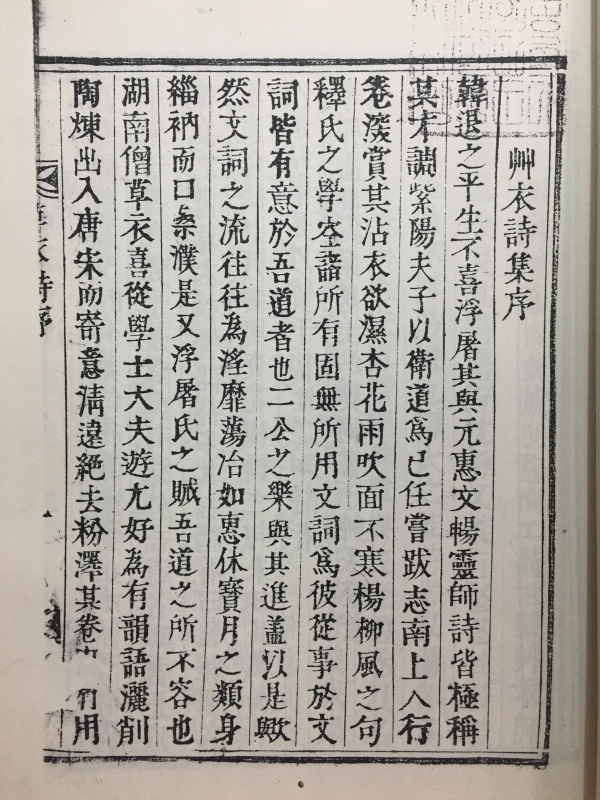 艸衣詩集序
韓退之平生不喜浮屠其與元惠文暢靈師詩皆極稱
其才調紫陽夫子以衛道爲已任嘗跋志南上人行
卷深賞其沾衣欲濕杏花雨吹面不寒楊柳風之句
釋氏之學空諸所有固無所用文詞爲彼從事於文
詞皆有意於吾道者也二公之樂與其進盖以是歟
然文詞之流往往為淫靡蕩冶如惠休寶月之類身
緇衲而口桑濮是又浮屠氏之賊吾道之所不容也
湖南僧草衣喜從學士大夫遊尤好為有韻語灑削
陶煉出入唐宋而寄意淸遠絕去粉澤其卷用
衣詩序